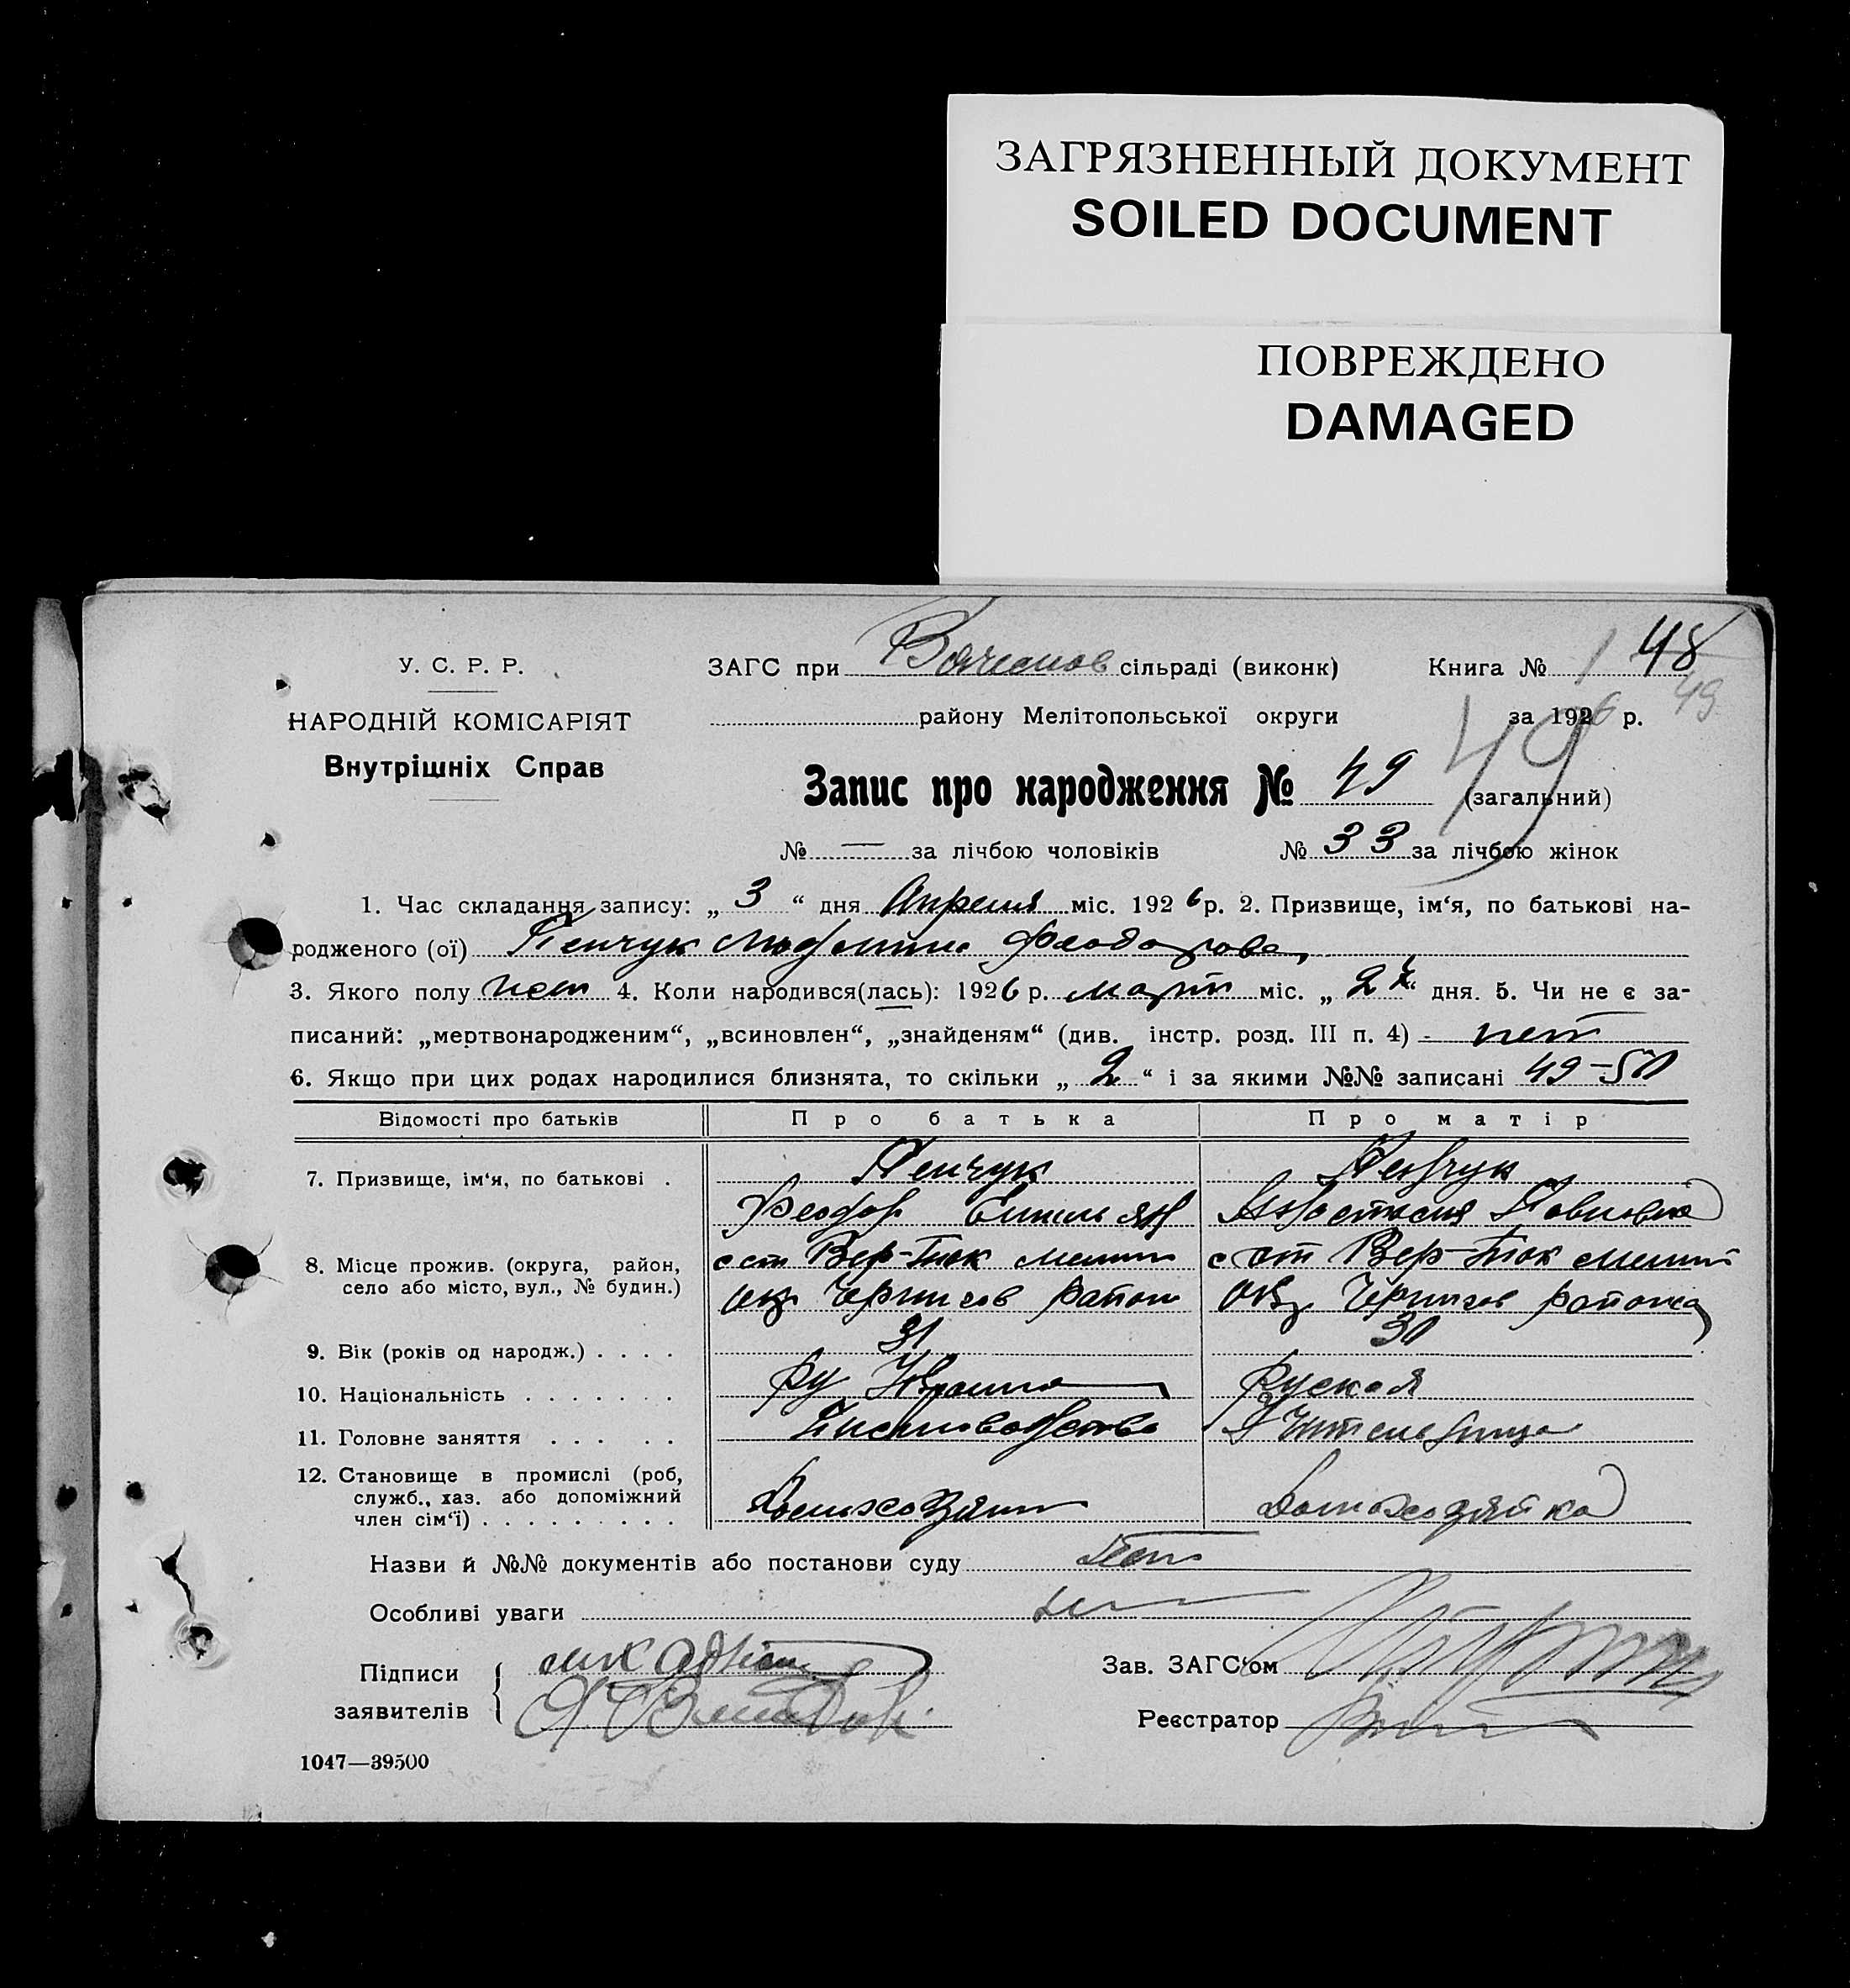 ЗАГРЯЗНЕННЫЙ ДОКУМЕНТ
SOILED DOCUMENT
ПОВРЕЖДЕНО
DAMAGED
У. С. Р. Р.
НАРОДНІЙ КОМІСАРІЯТ
Внутрішніх Справ
ЗАГС при сільраді (виконк) Книга № 1 48
49
району Мелітопольської округи за 1926 р.
49
Запис про народження № 49 (загальний)
№ — за лічбою чоловіків № 33 за лічбою жінок
1. Час складання запису: „ 3 “ дня Апреля міс. 1926 р. 2. Призвище, ім‘я, по батькові на-
родженого (ої) Пенчук Феодорова
3. Якого полу жен 4. Коли народився(лась): 1926 р. март міс. „ “ дня. 5. Чи не є за-
писаний: „мертвонародженим“, „всиновлен“, „знайденям“ (див. інстр. розд. III п. 4) - нет
6. Якщо при цих родах народилися близнята, то скільки „ 2 “ і за якими №№ записані 49-50
Відомості про батьків Про батька Про матір
7. Призвище, ім‘я, по батькові . Пенчук Пенчук
Феодор Емельян Анастасия Павловна
8. Місце прожив. (округа, район,
село або місто, вул., № будин.)
с ст Вер-Ток мелит с ст Вер-Ток мелит
окр Чернигов район окр Чернигов района
9. Вік (років од народж.) . . . . 31 30
10. Національність . . . . . . . руская
11. Головне заняття . . . . . Учительница
12. Становище в промислі (роб,
служб., хаз. або допоміжний
член сім‘ї) . . . . . . . . .
Домхозяин Домохозяйка
Назви й №№ документів або постанови суду нет
Особливі уваги
Підписи
заявителів
Зав. ЗАГС‘ом
Реєстратор
1047—39500